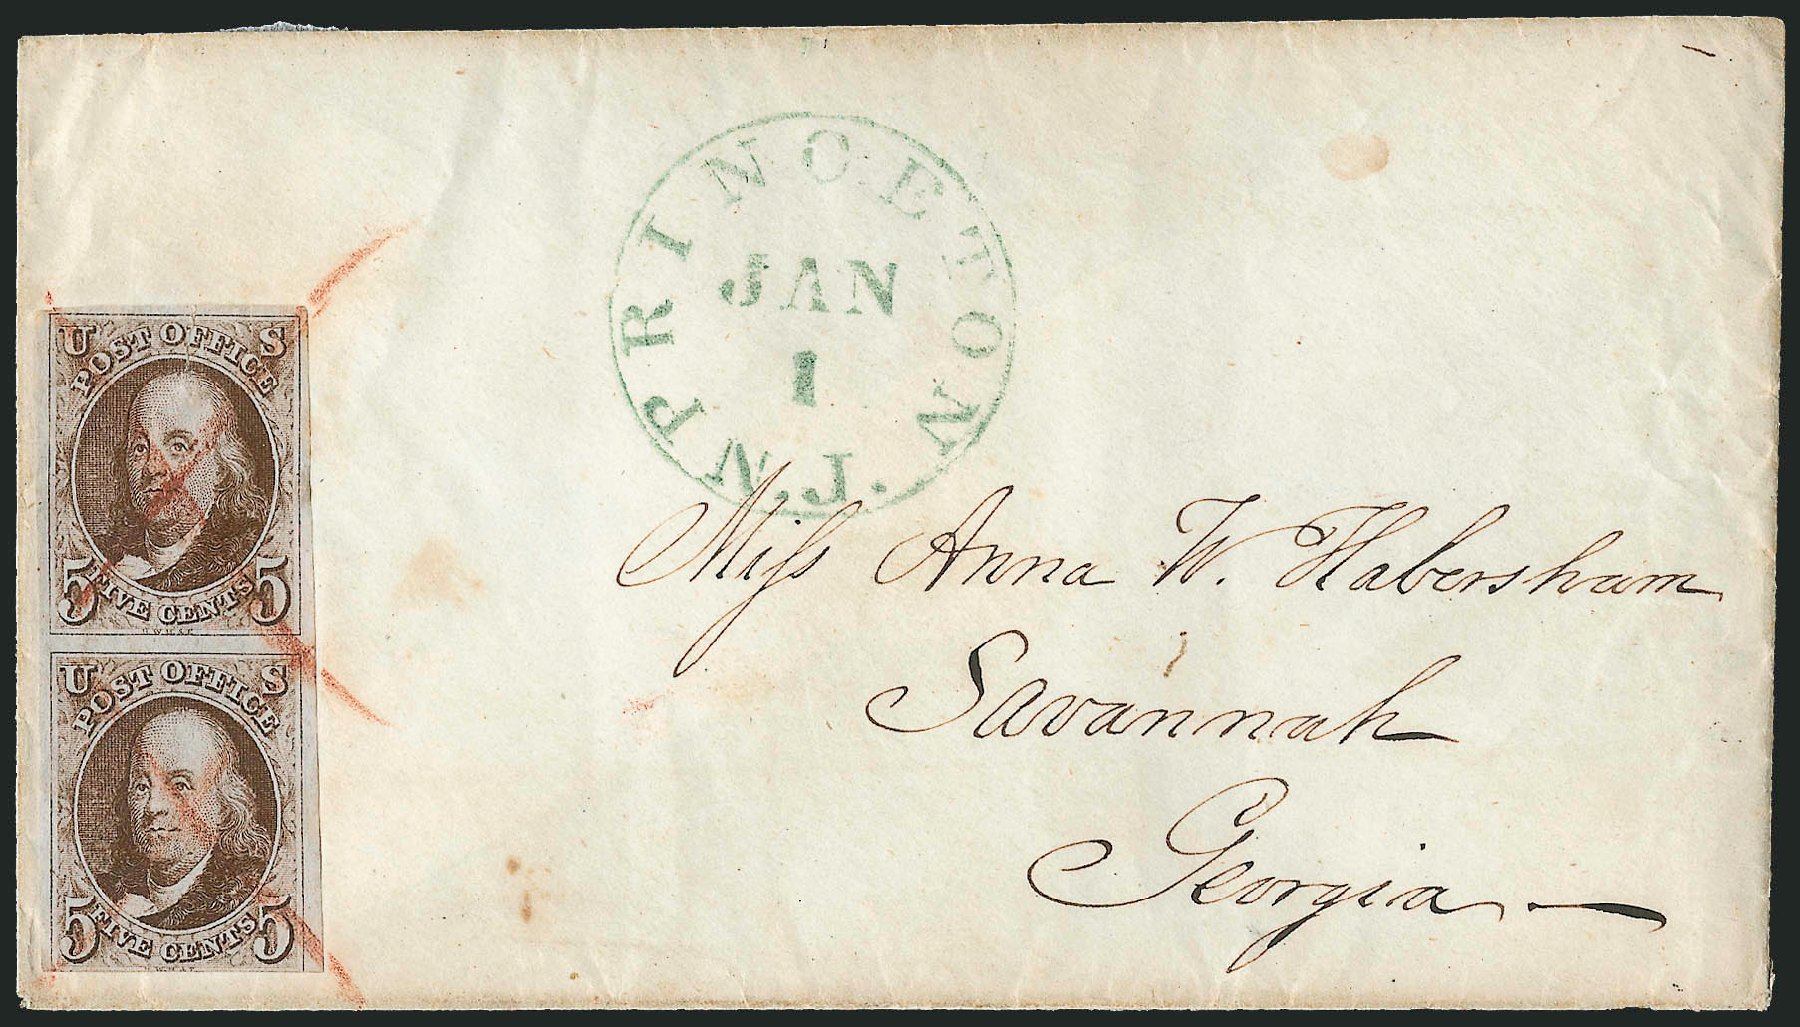 U S
POST OFFICE
5 FIVE CENTS 5
U S
POST OFFICE
5 FIVE CENTS 5
PRINCETON
JAN
1
N.J.
Miſs Anna W. Habersham
Savannah
Georgia